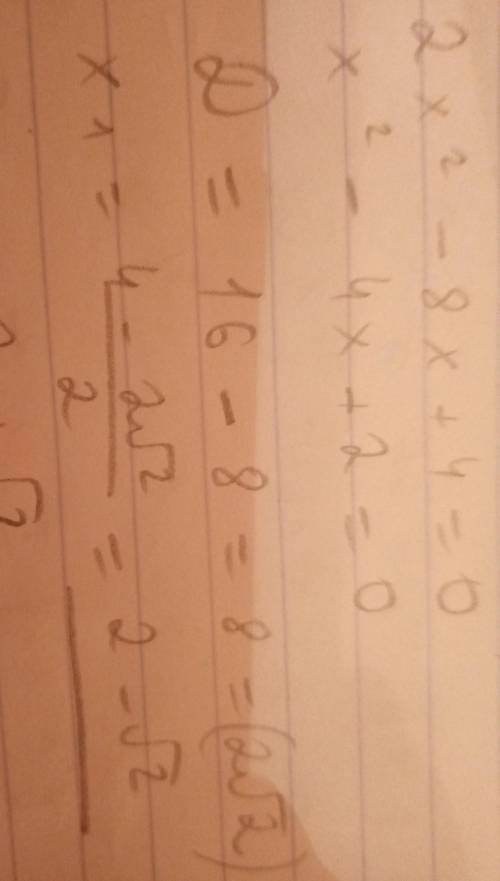 2x² - 8x + 4 = 0
x² - 4x + 2 = 0
D = 16 - 8 = 8 = (2√2)
x1 = 4 - 2√2 / 2 = 2 - √2